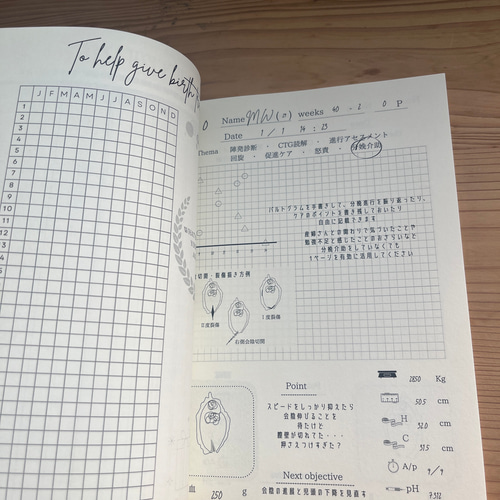 To help give birth
J F M A M J J A S O N D
1
2
3
4
5
6
7
8
9
10
11
12
Name MW(a) weeks 40 - 2 0 P
Date 1/1 14:23
Thema 陣発診断 ・ CTG読解 ・ 進行アセスメント
回旋 ・ 促進ケア ・ 怒責 ・ 分娩介助
パルトグラムを手書きして、分娩進行を振り返ったり、
ケアのポイントを書き残しておいたり
自由に記載できます
産婦さんとの関わりで気づいたことや
勉強不足と感じたことのおさらいなど
分娩介助をしていなくても
1ページを有効に活用してください
切開・裂傷描き方例
II度裂傷
右側会陰切開
I度裂傷
Point
スピードをしっかり抑えたら
会陰伸びることを
待たけど
膣壁が切れてた・・・
押さえつけすぎた？
Next objective
会陰の進展と児頭の下降を見直す
血 250 g
2850 Kg
50.5 cm
H 32.0 cm
C 31.5 cm
A/p 9/9
pH